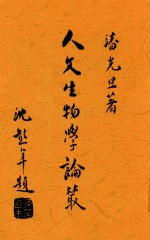 潘光旦著
人文生物學論叢
沈彭年題